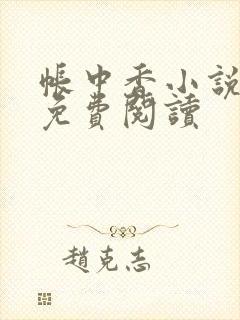 帳中香小說
免費閱讀
趙克志